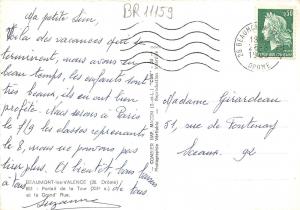 BR 11159
Ma petite Lim,
Voilà des vacances qui se
terminent, nous avons eu
beau temps, les enfants sont
très beaux, ils en ont bien
profité. Nous serons à Paris
le 1/9 les classes reprennent
le 8, nous ne pouvons pas
tirer plus. Et bientôt, bons baisers
à tous de tous
Suzanne
BEAUMONT-les-VALENCE (26. Drôme)
Portail de la Tour (XIIe s.)
et la Grand' Rue.
COMBIER IMP. MACON (S.-&-L.)
Photographie Véritable
0,30
26 BEAUMONT
DROME
Madame Girardeau
51, rue de Fontenay
Sceaux. 92